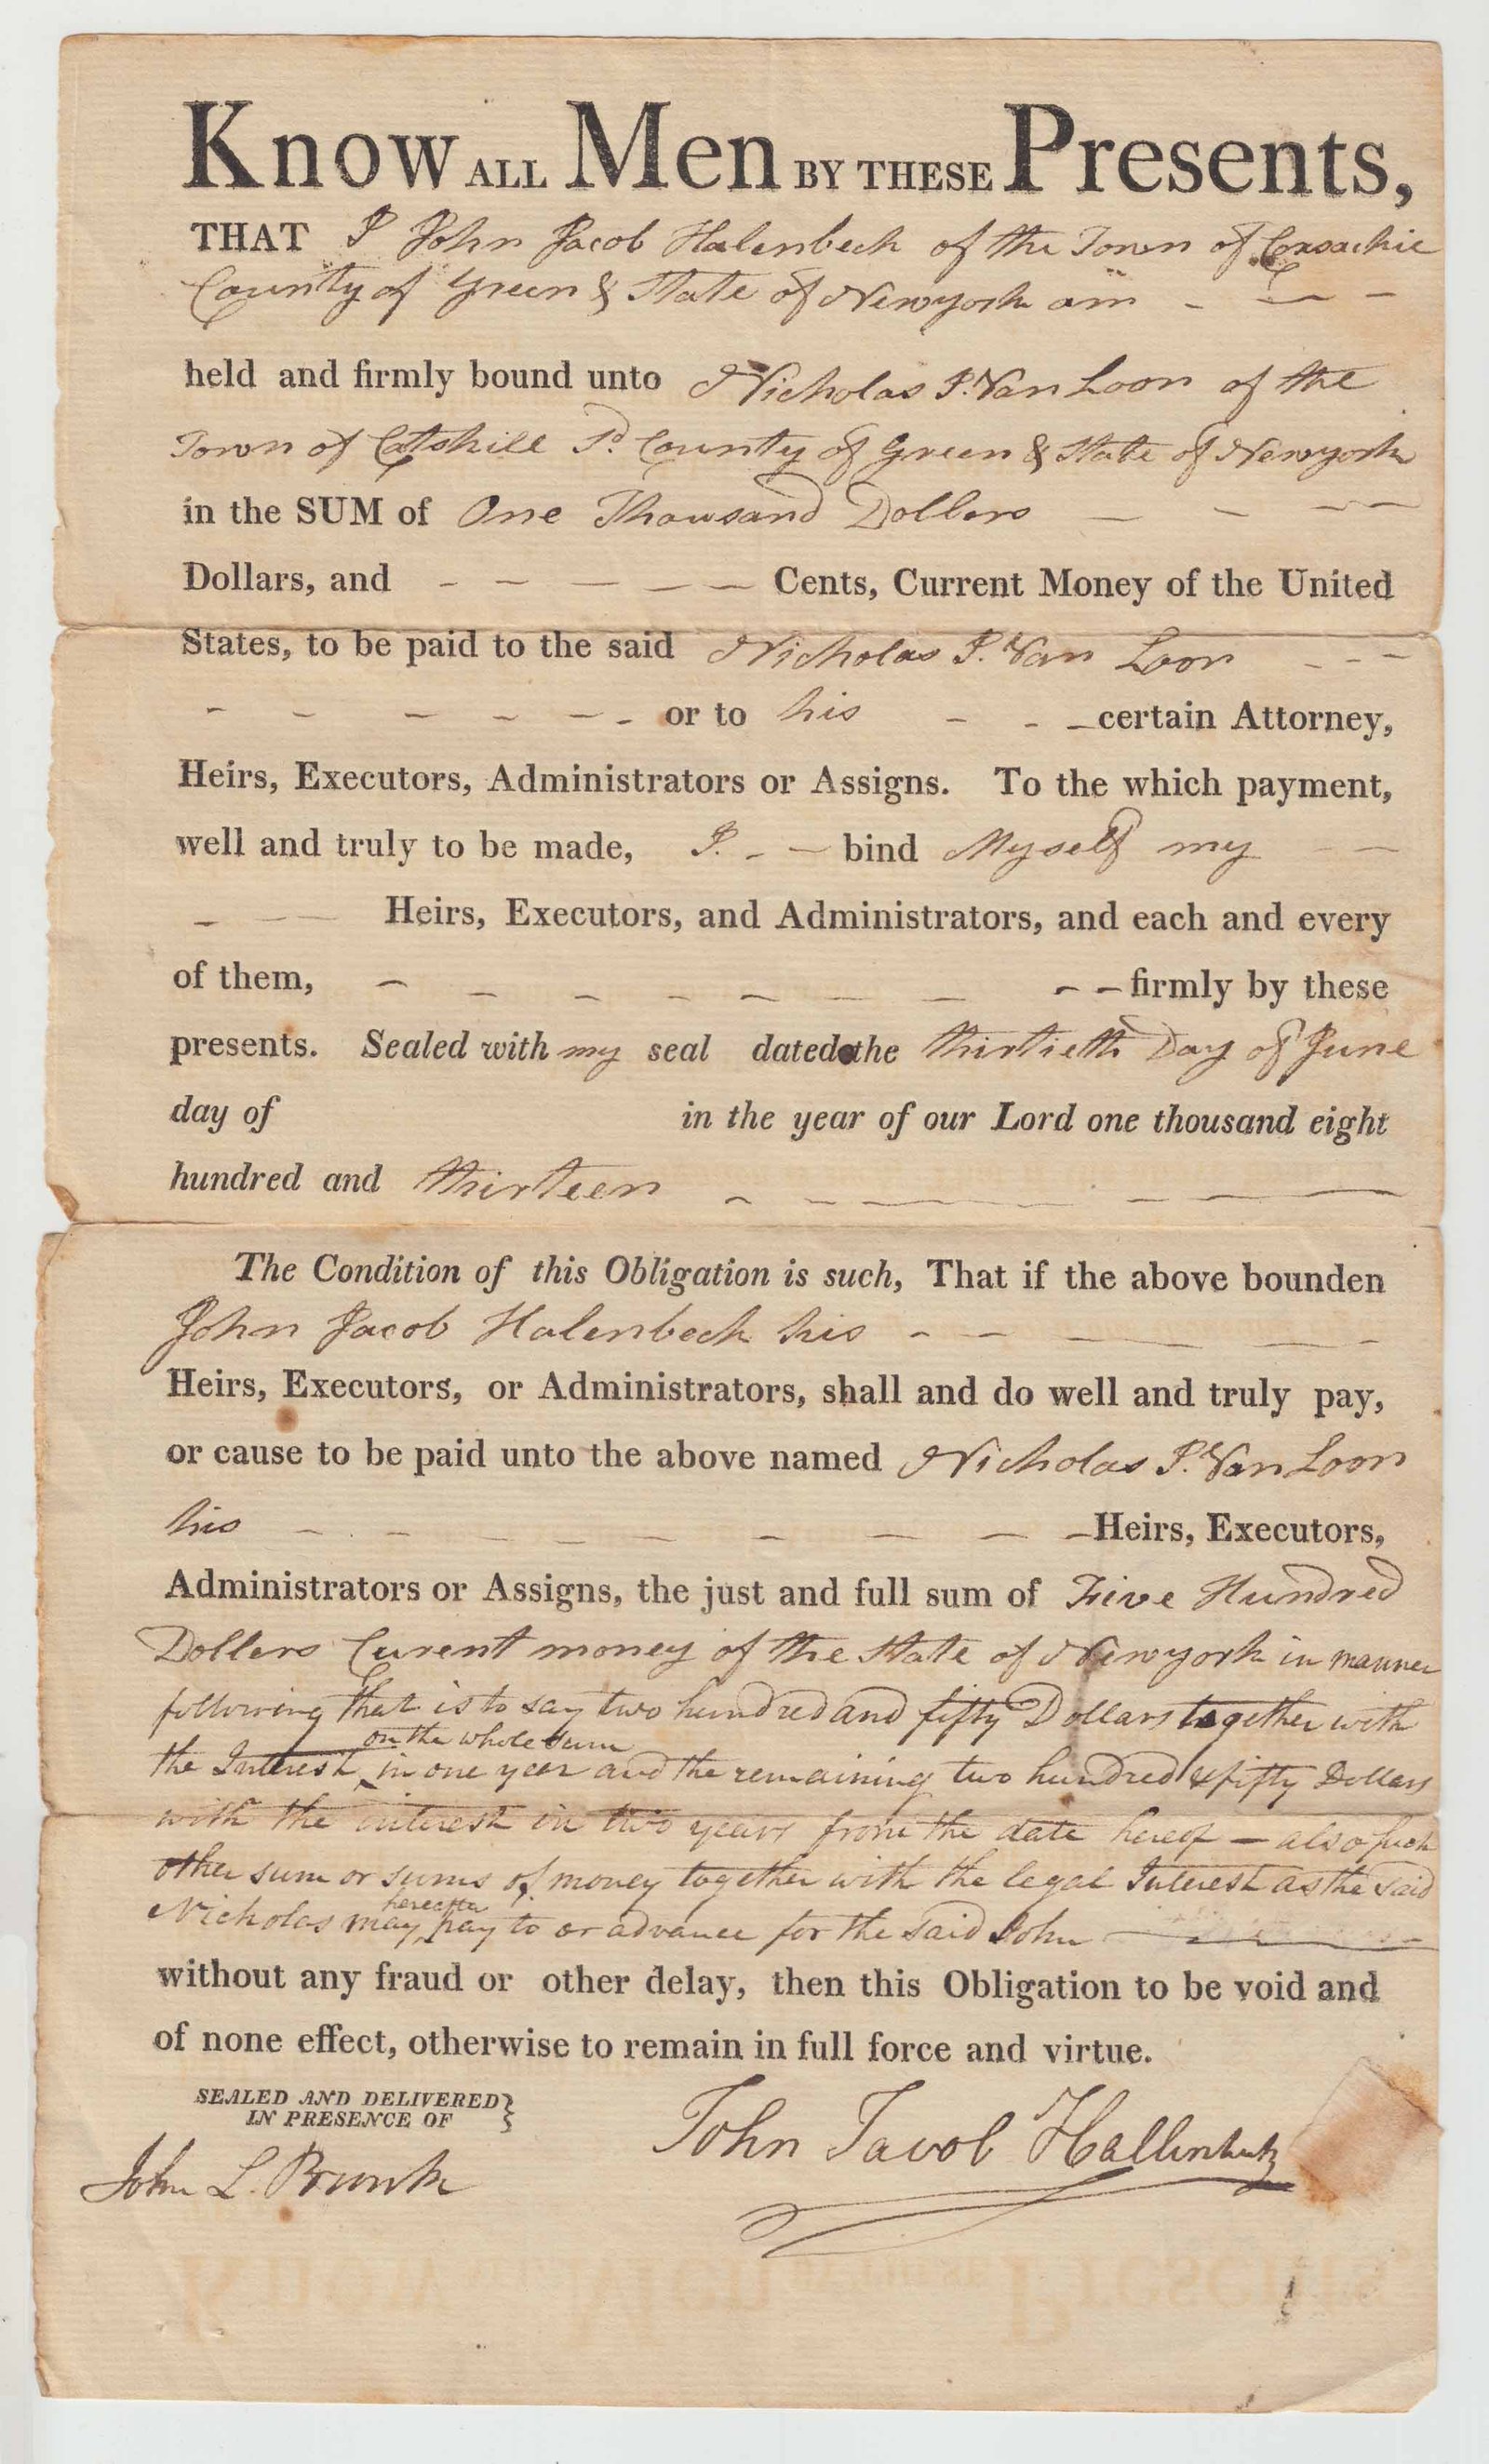 Know ALL Men BY THESE Presents,
THAT I John Jacob Halenbeck of the Town of Coxsackie
County of Green & State of Newyork am - - -
held and firmly bound unto Nicholas J. Van Loon of the
Town of Catskill Sd. County of Green & State of Newyork
in the SUM of One Thousand Dollers - - -
Dollars, and - - - - - Cents, Current Money of the United
States, to be paid to the said Nicholas J. Van Loon - - -
- - - - - - or to his - - - certain Attorney,
Heirs, Executors, Administrators or Assigns. To the which payment,
well and truly to be made, I - - bind Myself my - -
- - - Heirs, Executors, and Administrators, and each and every
of them, - - - - - - - - - firmly by these
presents. Sealed with my seal dated the thirtieth Day of June
day of in the year of our Lord one thousand eight
hundred and thirteen - - - - - -
The Condition of this Obligation is such, That if the above bounden
John Jacob Halenbeck his - - - - -
Heirs, Executors, or Administrators, shall and do well and truly pay,
or cause to be paid unto the above named Nicholas J. Van Loon
his - - - - - - - - - Heirs, Executors,
Administrators or Assigns, the just and full sum of Five Hundred
Dollers Curent money of the State of Newyork in manner
following that is to say two hundred and fifty Dollars together with
on the whole sum
the Interest ‸ in one year and the remaining two hundred & fifty Dollars
with the interest in two years from the date hereof — also such
other sum or sums of money together with the legal Interest as the said
hereafter
Nicholas may ‸ pay to or advance for the said John —
without any fraud or other delay, then this Obligation to be void and
of none effect, otherwise to remain in full force and virtue.
SEALED AND DELIVERED }
IN PRESENCE OF
John Jacob Hallenbeck
John L. Bronk